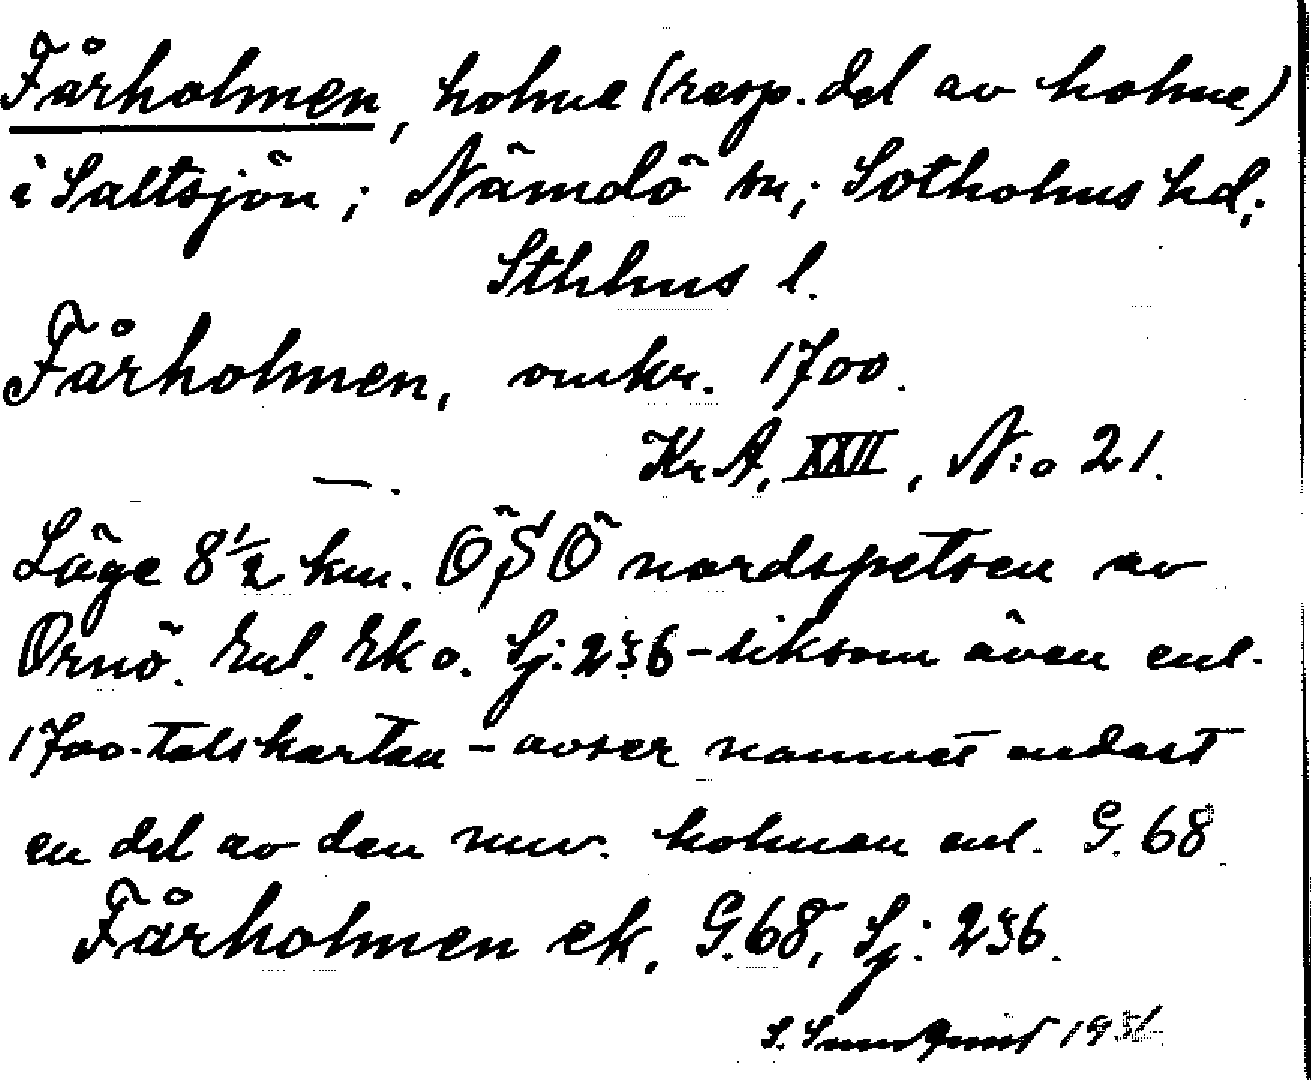 Fårholmen, holme (resp. del av holme)
i Saltsjön; Nämdö sn; Sotholms hd;
Sthlms l.
Fårholmen, omkr. 1700.
KrA, XXII, N:o 21.
—.
Läge 8½ km. ÖSÖ nordspetsen av
Ornö. Enl. Ek o. Sj: 236 – liksom även enl.
1700-talskartan – avser namnet endast
en del av den nuv. holmen enl. G. 68.
Fårholmen ek, G. 68, Sj: 236.
S. 19